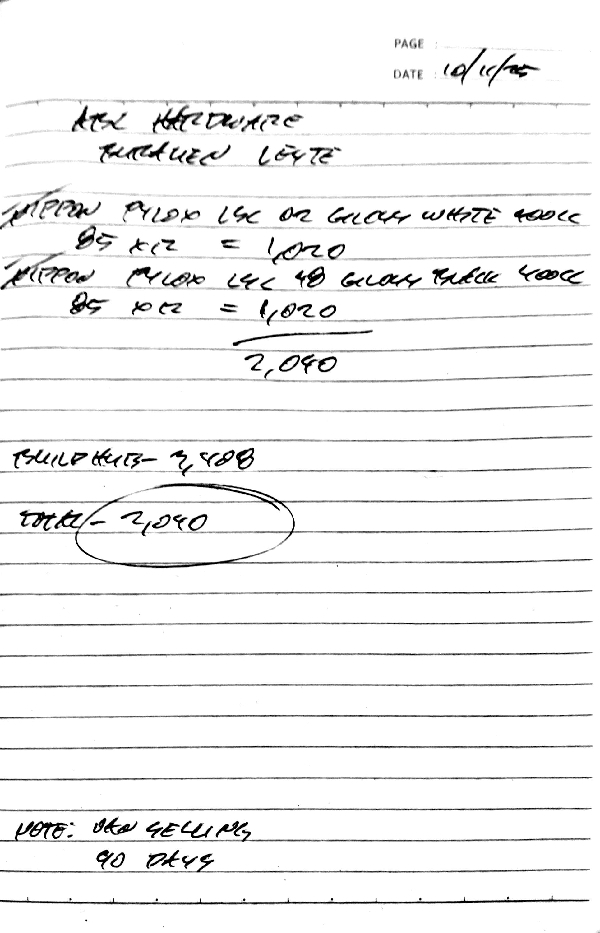 PAGE :
DATE : 10/11/25
HARDWARE
BURAUEN LEYTE
NIPPON PYLOX LSC 02 GLOSS WHITE 400CC
85 x 12 = 1,020
NIPPON PYLOX LSC 48 GLOSS BLACK 400CC
85 x 12 = 1,020
2,040
BUILDHUB-
TOTAL - 2,040
NOTE: VAN SELLING
90 DAYS